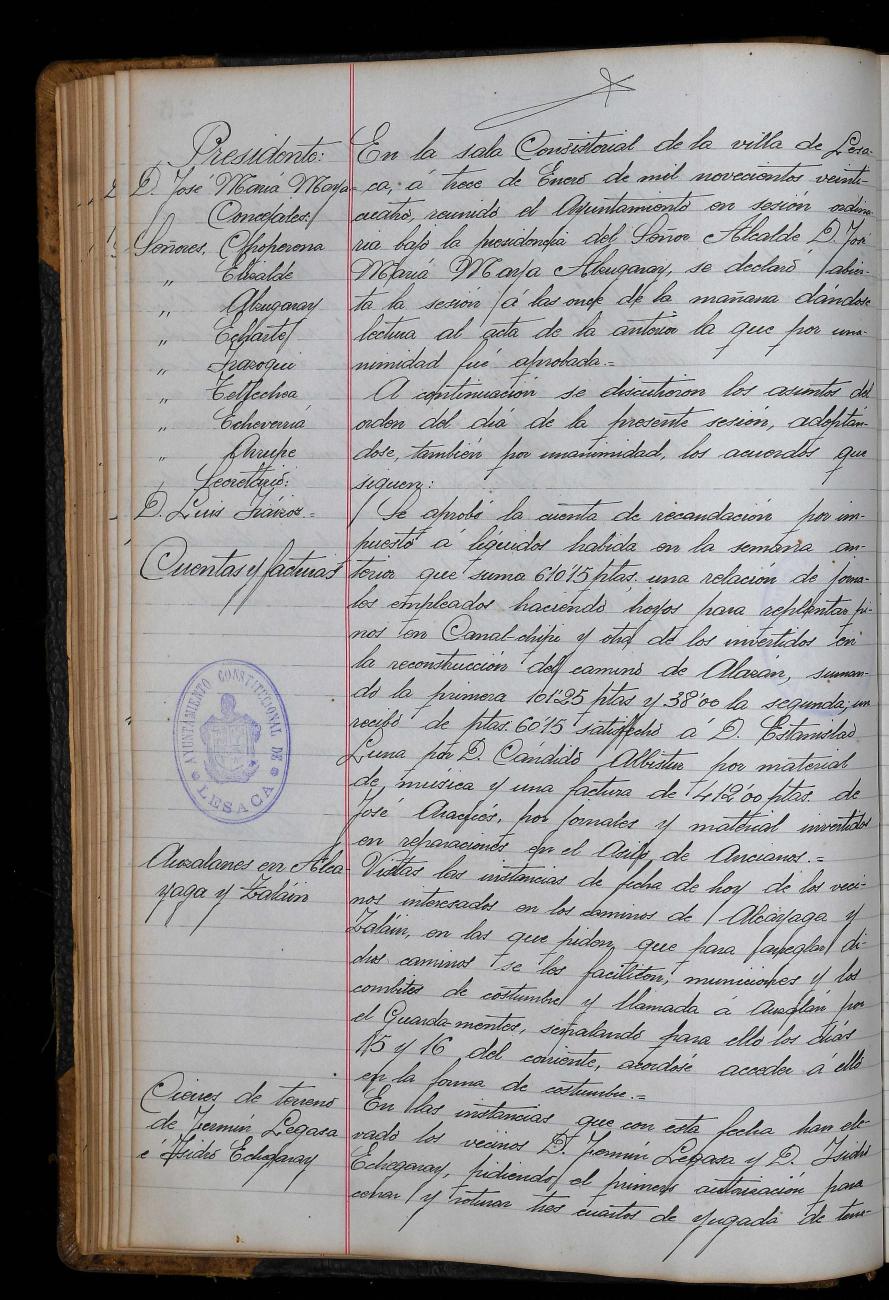 Presidente:
D. José María Marya-
Concejales.
Señores. Oproperena
„ Elizalde
„ Abugaray
„ Echarte
„ Irazoqui
„ Tellechea
„ Echeverría
„ Arrupe
Secretario:
D. Luis Iráizoz.=
Cuentas y facturas
AYUNTAMIENTO CONSTITUCIONAL DE LESACA
Auzalanes en Alca-
yaga y Zaláin
Cierres de terreno
de Fermín Legasa
é Isidro Echegaray
En la sala Consistorial de la villa de Lesa-
ca, á trece de Enero de mil novecientos veinti-
cuatro, reunido el Ayuntamiento en sesión ordina-
ria bajo la presidencia del Señor Alcalde D. José
María Marya Abugaray, se declaró abier-
ta la sesión a las once de la mañana dándose
lectura al acta de la anterior la que por una-
nimidad fué aprobada.=
A continuación se discutieron los asuntos del
orden del día de la presente sesión, adoptán-
dose, también por unanimidad, los acuerdos que
siguen:
Se aprobó la cuenta de recaudación por im-
puesto á líquidos habida en la semana an-
terior que suma 610'15 ptas. una relación de jorna-
les empleados haciendo hoyos para replantar pi-
nos en Canal-chipi y otra de los invertidos en
la reconstrucción del camino de Alazán, suman-
do la primera 101'25 ptas y 38'00 la segunda; un
recibo de ptas. 60'15 satisfecho á D. Estanislao
Luna por D. Cándido Albistur por material
de música y una factura de 412'00 ptas. de
José por jornales y material invertidos
en reparaciones en el Asilo de Ancianos.=
Vistas las instancias de fecha de hoy de los veci-
nos interesados en los caminos de Alcayaga y
Zaláin, en las que piden, que para arreglar di-
chos caminos se les faciliten, municiones y los
combites de costumbre y llamada á Auzalán por
el Guarda-montes, señalando para ello los días
15 y 16 del corriente, acordóse acceder á ello
en la forma de costumbre.=
En las instancias que con esta fecha han ele-
vado los vecinos D. Fermín Legasa y D. Isidro
Echegaray, pidiendo el primero autorización para
cerrar y roturar tres cuartos de yugada de terre-